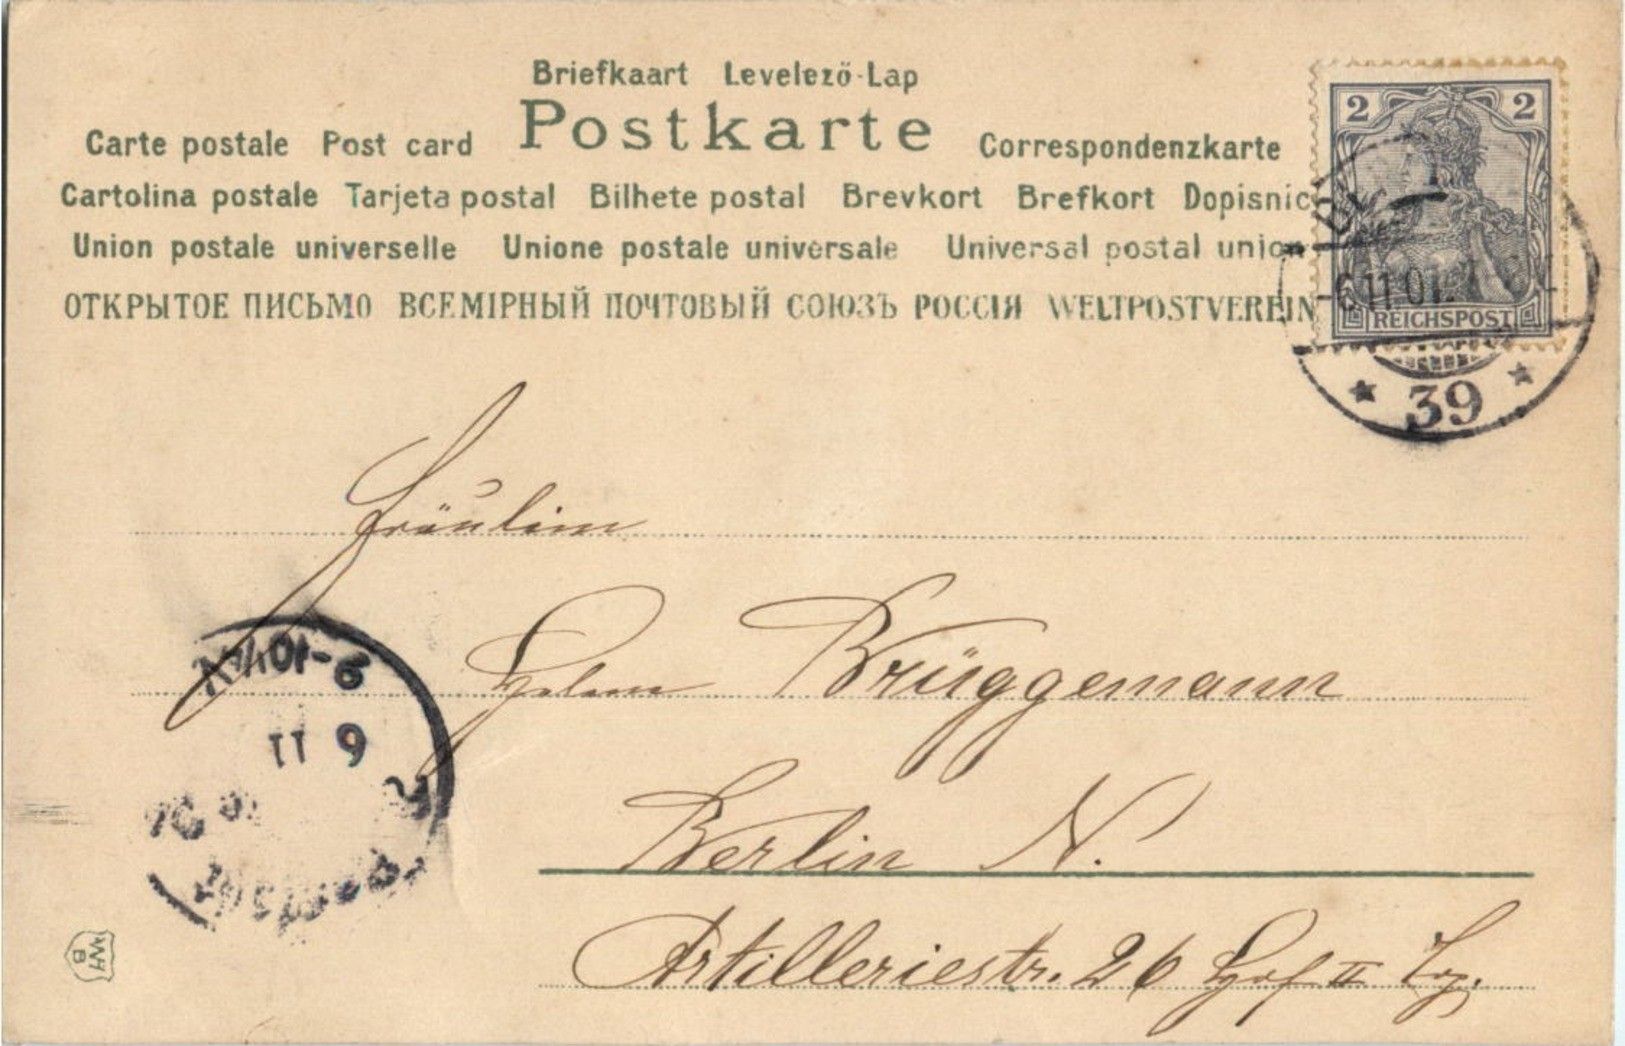 Briefkaart Levelező-Lap
Carte postale Post card Postkarte Correspondenzkarte
Cartolina postale Tarjeta postal Bilhete postal Brevkort Brefkort Dopisnic
Union postale universelle Unione postale universale Universal postal union
ОТКРЫТОЕ ПИСЬМО ВСЕМІРНЫЙ ПОЧТОВЫЙ СОЮЗЪ РОССІЯ WELTPOSTVEREIN
2 2
REICHSPOST
-6 11 01
* 39 *
Fräulein
Brüggemann
Berlin N.
Artilleriestr. 26 Hof II Trp.
9-10½ V
6 11
WH
B